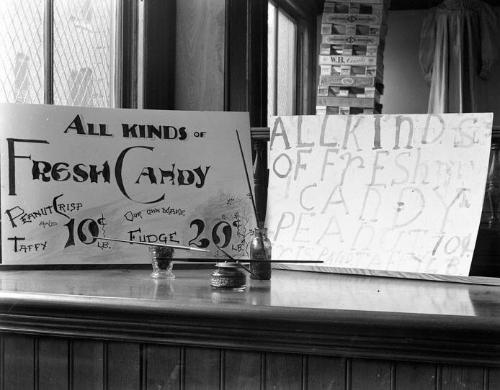 ALL KINDS OF
FRESH CANDY
PEANUT CRISP
AND
TAFFY 10¢ LB.
OUR OWN MAKE
FUDGE 20¢ LB.
ALL KINDS
OF FRESH
CANDY
PEANUT
10¢
W.B.